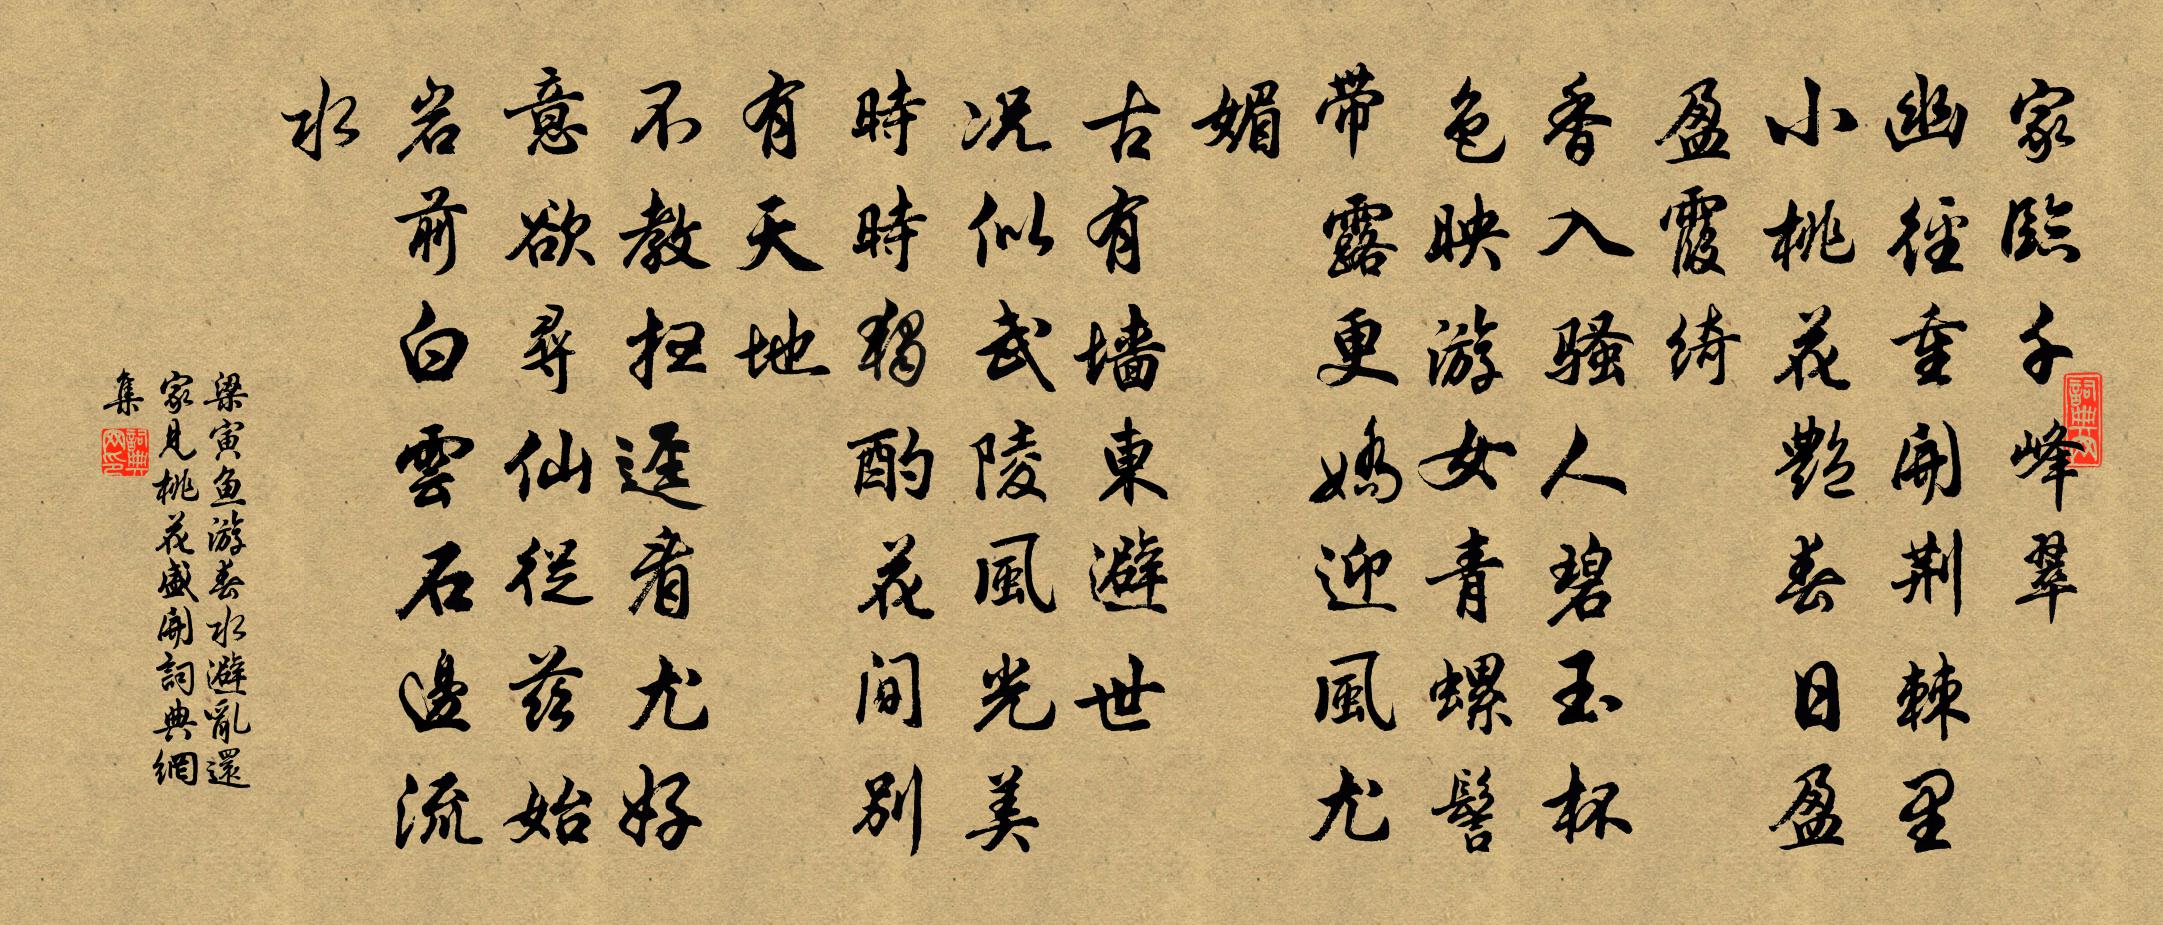 家臨千峰翠
幽徑重開荆棘里
小桃花艷春日盈
盈霞綺
香入騷人碧玉杯
色映游女青螺髻
帶露更嬌迎風尤
媚
古有墙東避世
况似武陵風光美
時時獨酌花間別
有天地
不教枉逕看尤好
意欲尋仙從兹始
岩前白雲石邊流
水
梁寅魚游春水避亂還
家見桃花盛開詞典網
集
詞典网
詞典网印